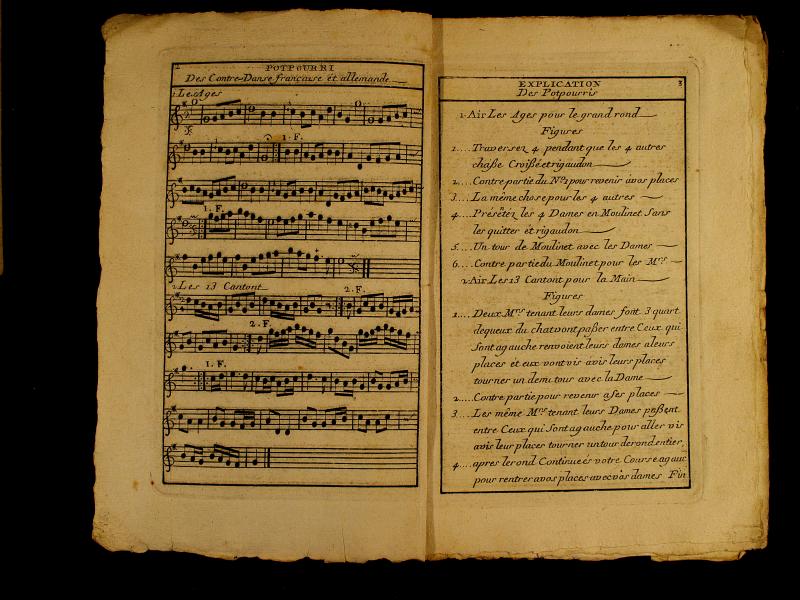 2
POTPOURRI
Des Contre-Danse française ét allemande
1 Les Ages
1. F.
1. F.
2 Les 13 Cantont
2. F.
2. F.
1. F.
EXPLICATION 3
Des Potpourris
1 Air Les Ages pour le grand rond
Figures
1.... Traversez 4 pendant que les 4 autres
chaße Croißé et rigaudon
2.... Contre partie du No1 pour revenir àvos places
3.... La même chose pour les 4 autres
4.... Présétéz les 4 Dames en Moulinet Sans
les quitter ét rigaudon
5.... Un tour de Moulinet avec les Dames
6.... Contre partie du Moulinet pour les Mrs
2 Air Les 13 Cantont pour la Main
Figures
1.... Deux Mrs tenant leurs dames font 3 quart
dequeux du chat vont paßer entre Ceux qui
Sont agauche renvoient leurs dames aleurs
places ét eux vont vis àvis leurs places
tourner un demi tous avec la Dame
2.... Contre partie pour revenir a ses places
3.... Les même Mrs tenant leurs Dames paßent
entre Ceux qui Sont agauche pour aller vis
avis leur places tourner un tour de rond entier,
4.... apres le rond Continueés votre Course agauc
pour rentrer avos places avec vos dames Fin